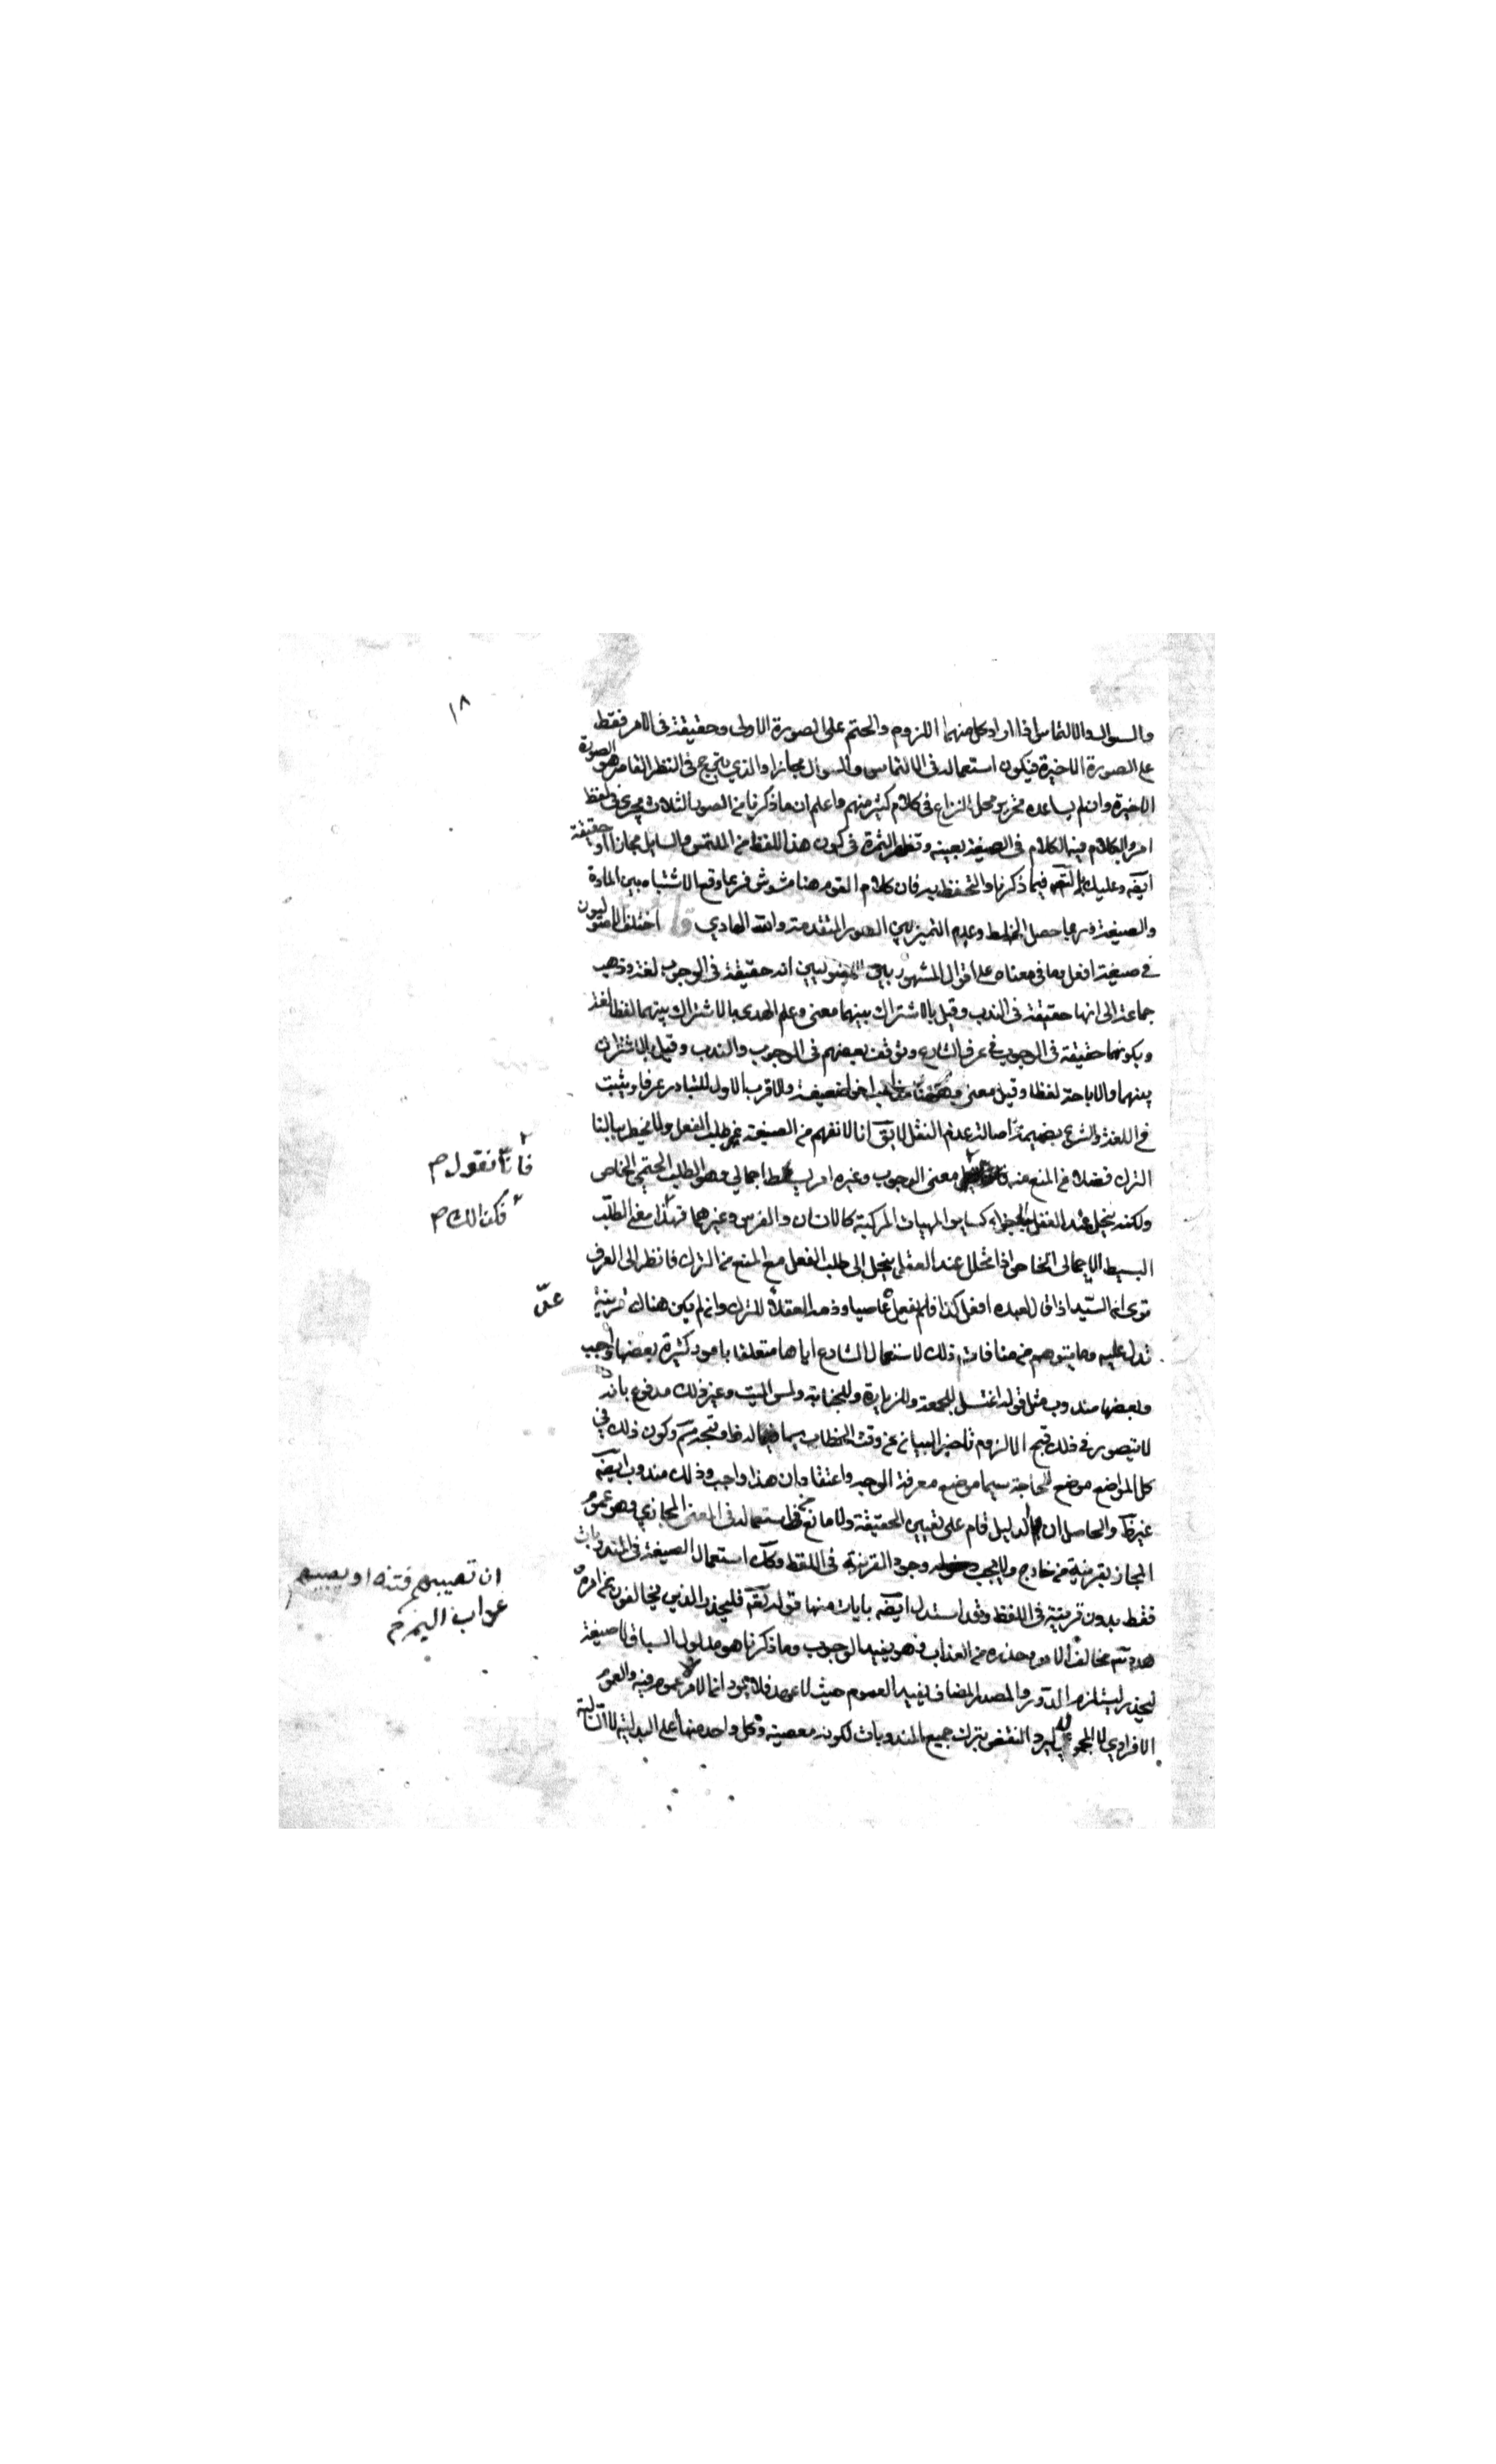 ١٨
والسوال والالتماس اذا اراد كل منهما اللزوم والحتم على الصورة الاولى وحقيقة فى الامر فقط
على الصورة الاخيرة فيكون استعماله فى الالتماس والسوال مجازا والذي يترجح فى النظر القاصر هو الصورة
الاخيرة وان لم يساعده تحرير محل النزاع فى كلام كثير منهم واعلم ان ما ذكرنا من الصور الثلاث يجرى فى لفظ
امر والكلام فيه الكلام فى الصيغة بعينه وتظهر الثمرة فى كون هذا اللفظ من الملتمس والسايل مجازا او حقيقة
ايضه وعليك بالتامل فيما ذكرنا والتحفظ به فان كلام القوم هنا مشوش فربما وقع الاشتباه بين المادة
والصيغة وربما حصل الخلط وعدم التميز بين الصور المتقدمة والله الهادي اختلف الاصوليون
فى صيغة افعل وما فى معناه على اقوال المشهور بين الاصوليين انه حقيقة فى الوجوب لغة وذهب
جماعة الى انها حقيقة فى الندب وقيل بالاشتراك بينهما معنى وعلم الهدى بالاشتراك بينهما لفظا لغة
وبكونها حقيقة فى الوجوب فى عرف الشارع وتوقف بعضهم فى الوجوب والندب وقيل بالاشتراك
بينهما والاباحة لفظا وقيل معنى وهنا مذاهب اخر ضعيفة والاقرب الاول للتبادر عرفا ويثبت
فى اللغة والشرع بضميمة اصالة عدم النقل لا يق انا لا نفهم من الصيغة غير طلب الفعل ولا يخطر ببالنا
الترك فضلا من المنع عنه معنى الوجوب وغيره امر بسيط اجمالي وهو الطلب الحتمي الخاص
فانّا نقول م
ولكنه ينحل عند العقل باجزاء كساير المهيات المركبة كالانسان والفرس وغيرهما فهذا معنى الطلب
فكذلك م
البسيط الاجمالى الخاص اذا تحلل عند العقل ينحل الى طلب الفعل مع المنع من الترك فانظر الى العرف
ترى ان السيّد اذا قال لعبده افعل كذا فلم يفعل عاصيا وذمه العقلاء للترك وان لم يكن هناك قرينة
عدّ
تدل عليه وما يتوهم من منافات ذلك لاستعمال الشارع اياها متعلقا بامور كثيرة بعضها واجب
وبعضها مندوب مثل قوله اغتسل للجمعة وللزيارة وللجنابة ولمس الميت وغير ذلك مدفوع بانه
لا يتصور فى ذلك قبح الا لزوم تاخير البيان عن وقت الخطاب وكون ذلك فى
كل المواضع موضع الحاجة سيما موضع معرفة الوجه واعتقاد ان هذا واجب وذلك مندوب ايضه
غير ظ والحاصل ان الدليل قام على تعيين الحقيقة ولا مانع من استعماله فى المعنى المجازي وهو عموم
المجاز بقرينة من خارج ولا يجب وجود القرينة فى اللفظ وكك استعمال الصيغة فى المندوبات
فقط بدون قرينة فى اللفظ وقد استدل ايضه بايات منها قوله تعه فليحذر الذين يخالفون عن امره
ان تصيبهم فتنه او يصيبهم
عذاب اليم م
هدد سبحانه مخالف الامر وحذره من العذاب فهو يفيد الوجوب وما ذكرنا هو مدلول السياق لا صيغة
ليحذر ليستلزم الدور والمصدر المضاف يفيد العموم حيث لا عهد فلا يرد انما الامر لا عموم فيه والعموم
الافرادي لا المجموعي ليرد النقض بترك جميع المندوبات لكونه معصية وكل واحد منها على البدلية